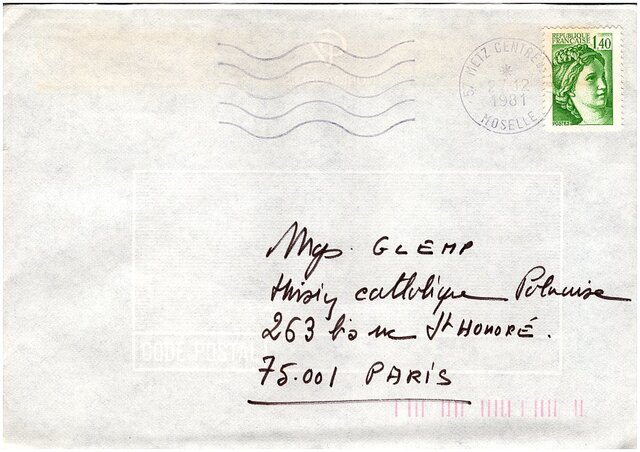 REPUBLIQUE
FRANÇAISE
1,40
57 METZ CENTRE
*
27-12
1981
MOSELLE
Mgr. GLEMP
catholique Polonaise
263 bis rue St HONORÉ.
CODE POSTAL
75.001 PARIS